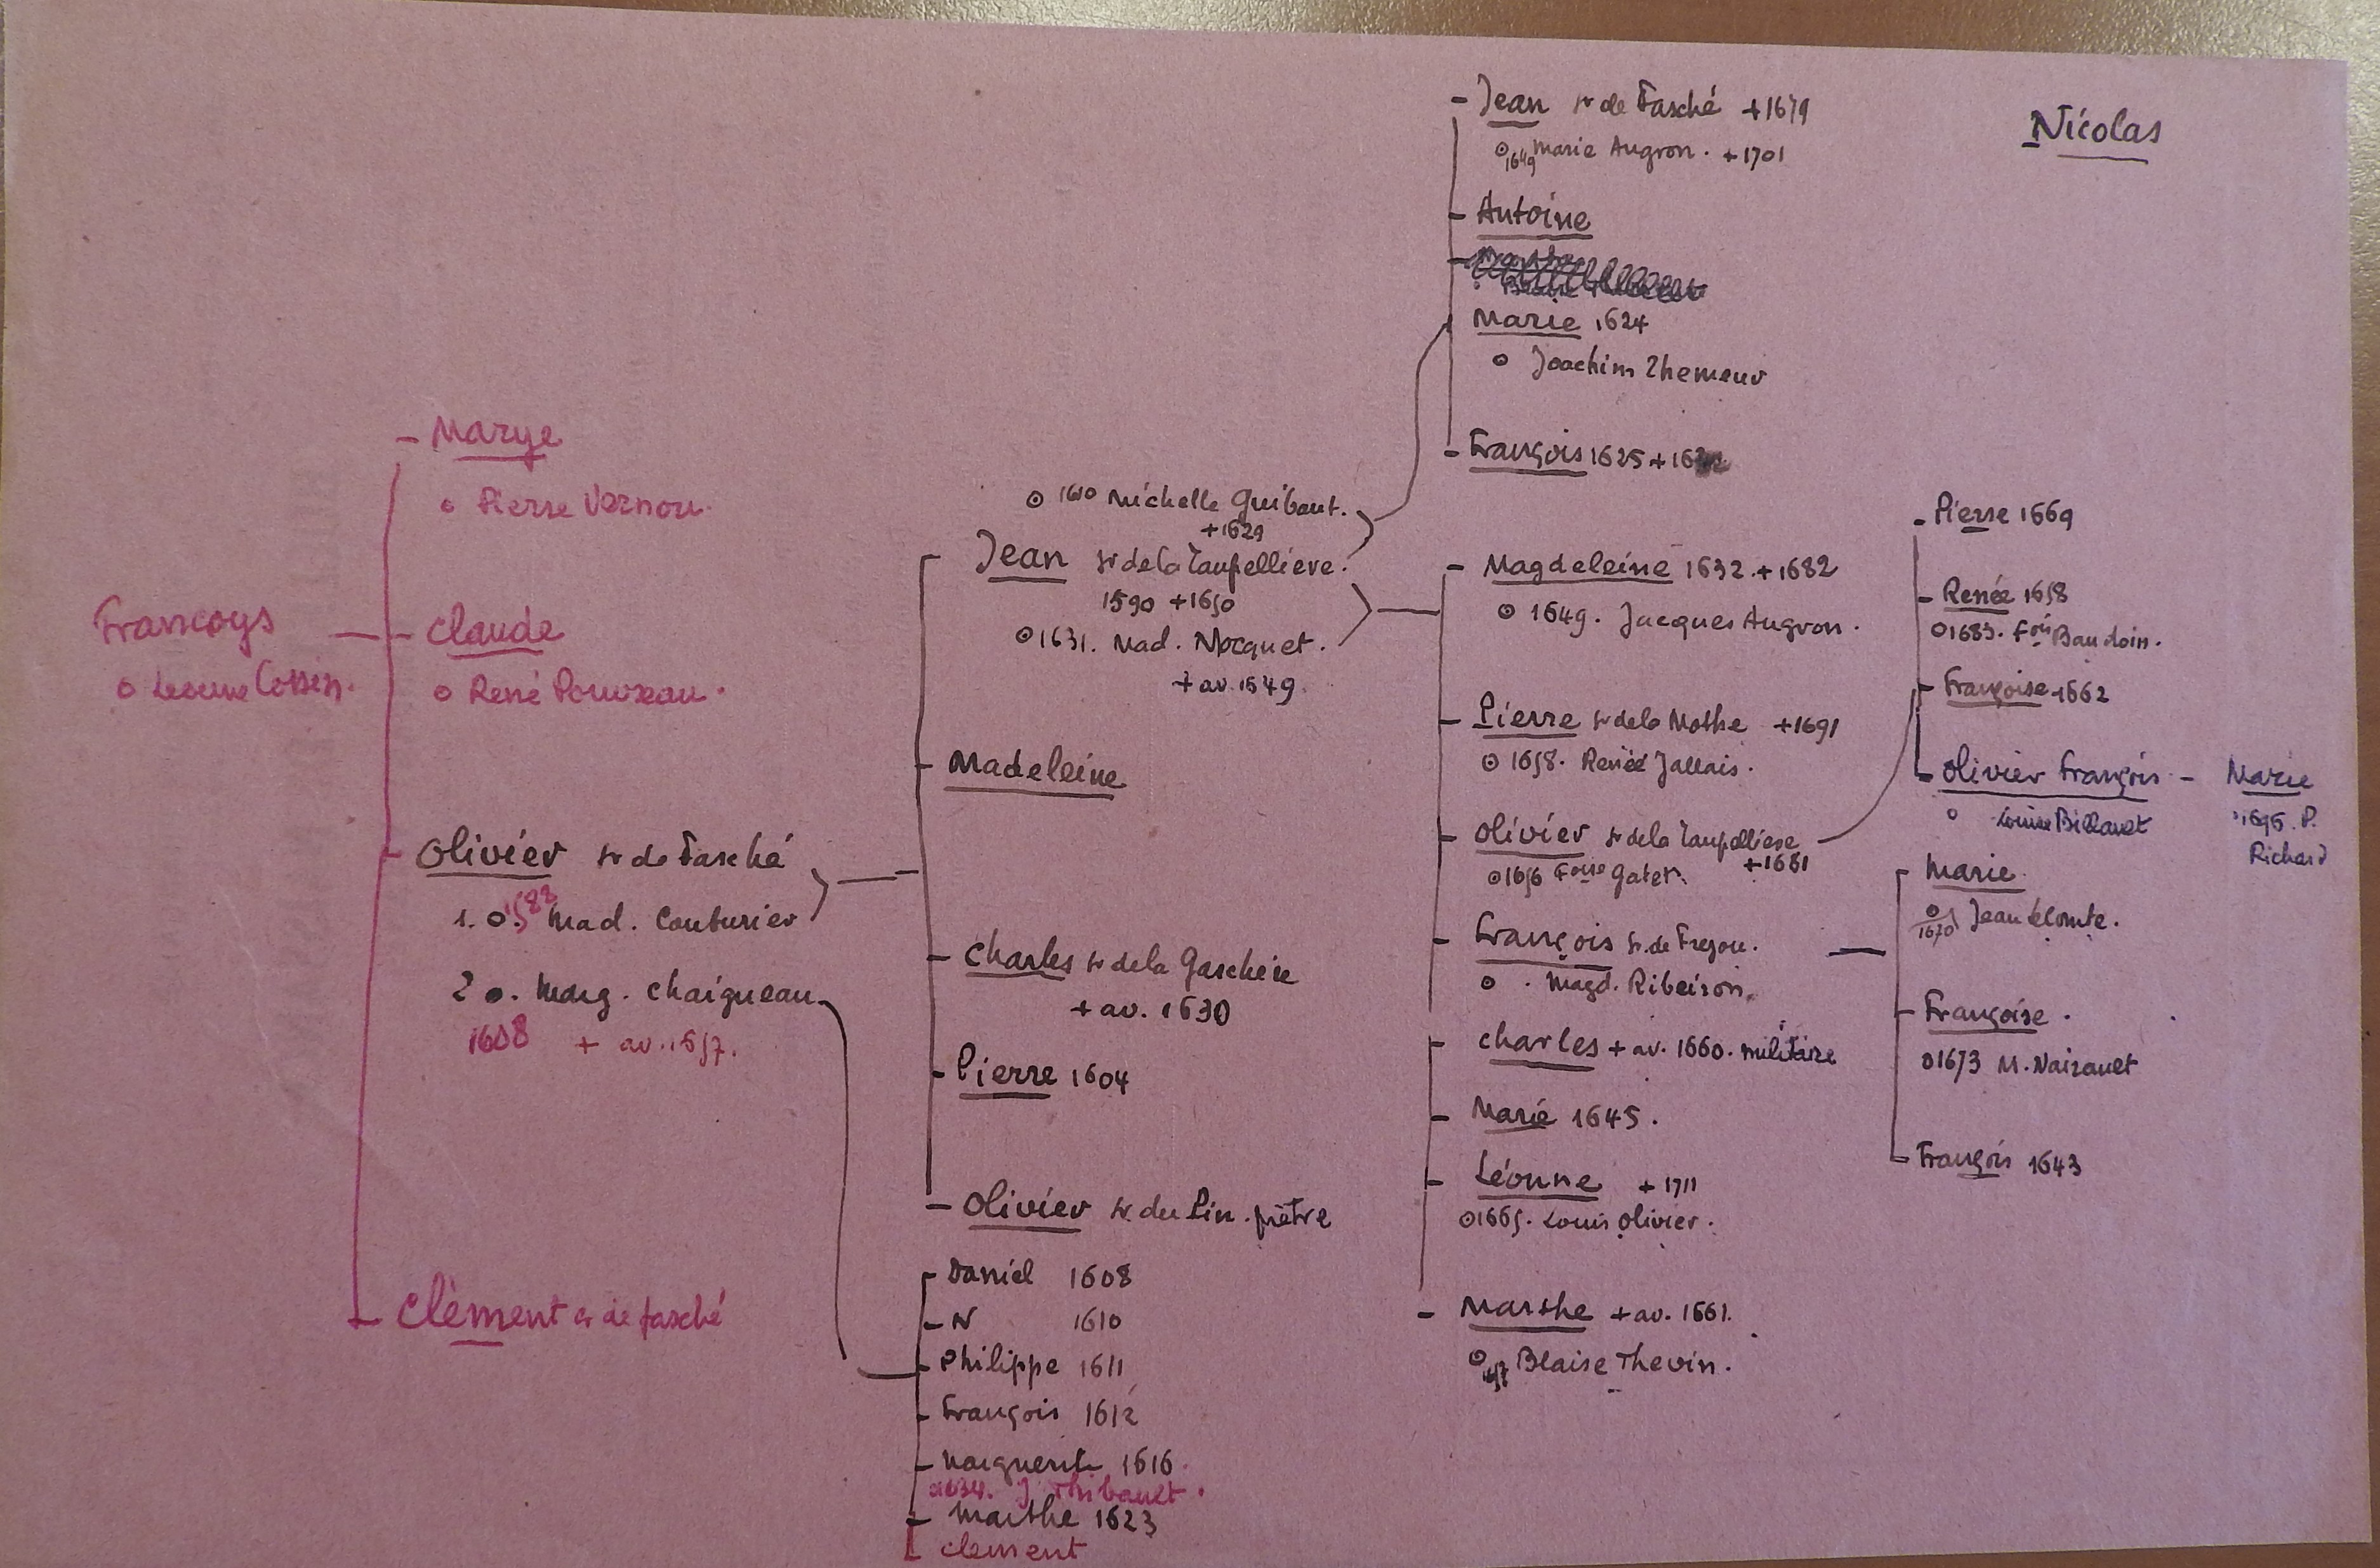 Nicolas
Francoys
o Leonne Cossin.
- Marye
o Pierre Vernou.
- Claude
o René Pouvreau.
Olivier sr de Fasché
1. o. 1588 Mad. Couturier
2 o. Marg. Chaigneau
1608 + av. 1657.
Clément sr de fasché
o 1610 Michelle Guibaut.
+1629
Jean sr de la Taupelliere.
1590 +1650
o 1631. Mad. Nocquet.
+ av. 1649
- Madeleine
- Charles sr de la Gascheie
+ av. 1630
- Pierre 1604
- Olivier sr du Pin. prêtre
Daniel 1608
- N 1610
- Philippe 1611
- François 1612
- Marguerite 1616
o1634. J. Thibault.
- Marthe 1623
clement
- Jean sr de Fasché +1679
o 1649 Marie Augron. +1701
- Antoine
- Marie 1624
o Joachim
- François 1625 +
- Magdeleine 1632 + 1682
o 1649. Jacques Augron.
- Pierre sr de la Mothe +1691
o 1658. Renée Jallais.
- Olivier sr de la Taupelliere
+1661
o1656 Foise Gater.
- François sr. de
o . Magd. Ribeiron.
- Charles + av. 1660. militaire
- Marie 1645.
- Léonne + 1711
o1665. Louis Olivier.
- Marthe + av. 1661.
o 1657 Blaise Thevin.
- Pierre 1669
- Renée 1658
o1683. Fois Baudoin.
- Françoise 1662
- Olivier François - Marie
o Louise Billauet
1695. P.
Richard
- Marie
o 1670 Jean
- Françoise.
o1673 M. Nairauet
- François 1643